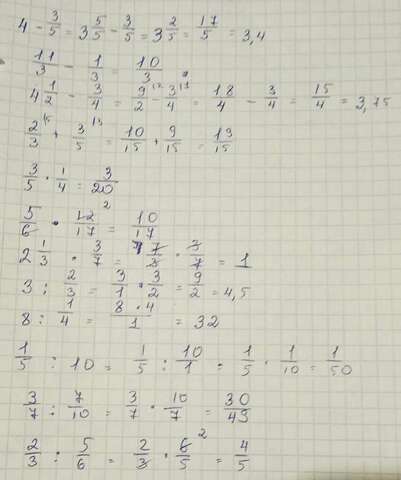 4 - 3/5 = 3 5/5 - 3/5 = 3 2/5 = 17/5 = 3,4
11/3 - 1/3 = 10/3 .
4 1/2 - 3/4 = 9/2 - 3/4 = 18/4 - 3/4 = 15/4 = 3,75
2/3 + 3/5 = 10/15 + 9/15 = 19/15
3/5 · 1/4 = 3/20
5/6 · 12/17 = 10/17
2 1/3 · 3/7 = 7/3 · 3/7 = 1
3 : 2/3 = 3/1 · 3/2 = 9/2 = 4,5
8 : 1/4 = 8 · 4/1 = 32
1/5 : 10 = 1/5 : 10/1 = 1/5 · 1/10 = 1/50
3/7 : 7/10 = 3/7 · 10/7 = 30/49
2/3 : 5/6 = 2/3 · 6/5 = 4/5